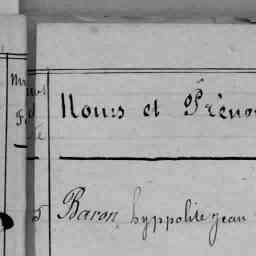 Noms et Préno
5 Baron, hyppolite jean